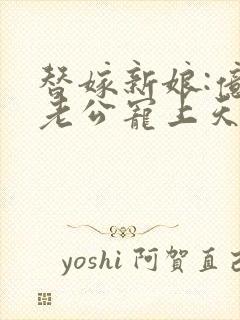 替嫁新娘:億
老公寵上天
yoshi 阿賀直己